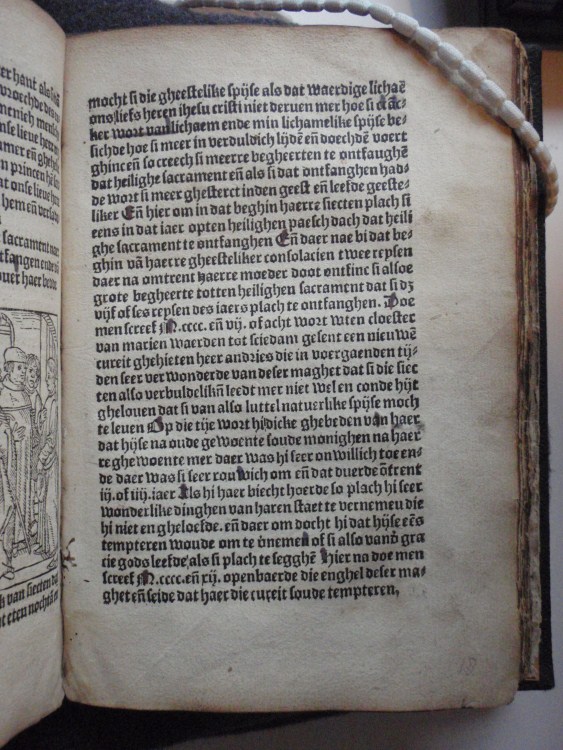 er hant als su
vroechde den
ntnieh mensch
nse lieue herr
amer en̄ ghehe
n princen hi
at onse lieue he
hem en̄ verly
sacrament nae
tfangen ende
ouer haer beuo
k van siecten
t eten nochtās
mocht si die gheestelike spijse als dat waerdige lichaē
ons liefs heren ihesu cristi niet deruen mer hoe si crāc-
ker wort van lichaem ende min lichamelike spijse be-
sichde hoe si meer in verduldich lijdē en̄ doechdē voert
ghincen̄ so creech si meerre begheerten te ontfaughē
dat heilighe sacrament en̄ als si dat ontfanghen had-
de wort si meer ghesterct inden geest en̄ leefde geeste-
liker En̄ hier om in dat beghin haerre siecten plach si
eens in dat iaer opten heilighen paesch dach dat heili
ghe sacrament te ontfanghen En̄ daer nae bi dat be-
ghin vā haerre gheesteliker consolacien twee reysen
daer na omtrent haerre moeder doot ontfinc si alsoe
grote begheerte totten heilighen sacrament dat si dz
vijf of ses reysen des iaers plach te ontfanghen. Doe
men screef M.cccc. en̄ vij. of acht wort wten cloester
van marien waerden tot sciedam gesent een nieuwē
cureit ghehieten heer andries die in voergaenden tij-
den seer verwonderde van deser maghet dat si die siec
ten also verduldelikn̄ leedt mer niet wel en conde hijt
ghelouen dat si van also luttel natuerlike spijse moch
te leuen Op die tije wort hi dicke ghebeden van haer
dat hijse na oude gewoente soude monighen na haer
re ghewoente mer daer was hi seer on willich toe en-
de daer was si seer rouwich om en̄ dat duerde ōtrent
iij. of iiij. iaer Als hi haer biecht hoerde so plach hi seer
wonderlike dinghen van haren staet te vernemeu die
hi niet en gheloefde. en̄ daer om docht hi dat hijse eēs
tempteren woude om te ūnemen of si also vanð gra
cie gods leefde als si plach te segghē Hier na doe men
screef M.cccc. en̄ xij. openbaerde die enghel deser ma-
ghet en̄ seide dat haer die cureit soude tempteren,
18